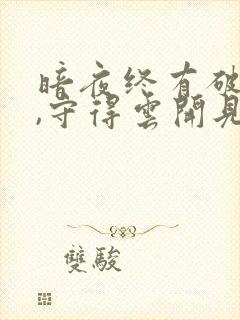 暗夜终有破
,守得雲開見
雙駿